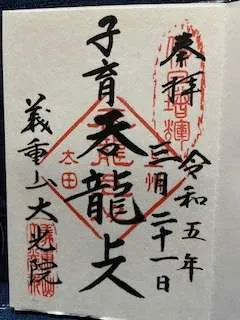 奉拝
令和五年
三月二十一日
子育呑龍上人
太田
義重山大光院